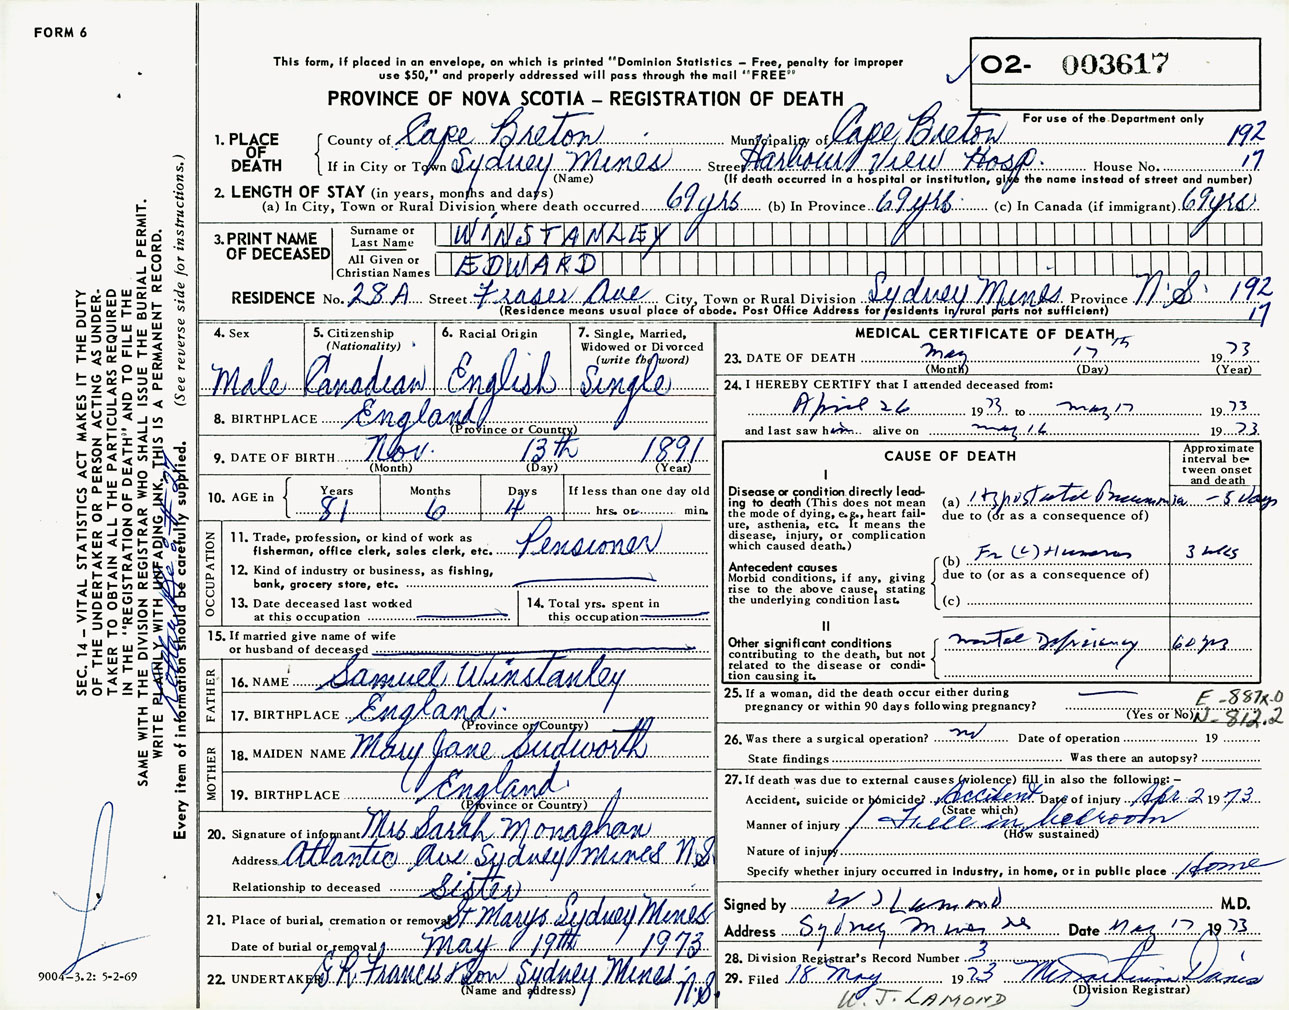 FORM 6
This form, if placed in an envelope, on which is printed "Dominion Statistics – Free, penalty for improper
use $50," and properly addressed will pass through the mail "FREE"
PROVINCE OF NOVA SCOTIA – REGISTRATION OF DEATH
02- 003617
For use of the Department only
1. PLACE OF DEATH
County of Cape Breton Municipality of Cape Breton 192
If in City or Town Sydney Mines Street Harbour View Hosp. House No. 17
(Name) (If death occurred in a hospital or institution, give the name instead of street and number)
2. LENGTH OF STAY (in years, months and days)
(a) In City, Town or Rural Division where death occurred 69 yrs (b) In Province 69 yrs. (c) In Canada (if immigrant) 69 yrs
3. PRINT NAME OF DECEASED
Surname or Last Name WINSTANLEY
All Given or Christian Names EDWARD
RESIDENCE No. 28A Street Fraser Ave City, Town or Rural Division Sydney Mines Province N.S. 192
(Residence means usual place of abode. Post Office Address for residents in rural parts not sufficient) 17
4. Sex Male
5. Citizenship (Nationality) Canadian
6. Racial Origin English
7. Single, Married, Widowed or Divorced (write the word) Single
8. BIRTHPLACE England
(Province or Country)
9. DATE OF BIRTH Nov. 13th 1891
(Month) (Day) (Year)
10. AGE in Years 81 Months 6 Days 4 If less than one day old hrs. or min.
OCCUPATION
11. Trade, profession, or kind of work as fisherman, office clerk, sales clerk, etc. Pensioner
12. Kind of industry or business, as fishing, bank, grocery store, etc.
13. Date deceased last worked at this occupation
14. Total yrs. spent in this occupation
15. If married give name of wife or husband of deceased
FATHER
16. NAME Samuel Winstanley
17. BIRTHPLACE England
(Province or Country)
MOTHER
18. MAIDEN NAME Mary Jane Sudworth
19. BIRTHPLACE England
(Province or Country)
20. Signature of informant Mrs Sarah Monaghan
Address Atlantic Ave Sydney Mines N.S
Relationship to deceased Sister
21. Place of burial, cremation or removal St Marys Sydney Mines
Date of burial or removal May 19th 1973
22. UNDERTAKER G R Francis & Son Sydney Mines N.S.
(Name and address)
MEDICAL CERTIFICATE OF DEATH
23. DATE OF DEATH May 17th 1973
(Month) (Day) (Year)
24. I HEREBY CERTIFY that I attended deceased from:
April 26 1973 to May 17 1973
and last saw him alive on May 16 1973
CAUSE OF DEATH
Approximate interval between onset and death
I
Disease or condition directly leading to death (This does not mean the mode of dying, e.g., heart failure, asthenia, etc. It means the disease, injury, or complication which caused death.)
(a) Hypostatic Pneumonia – 5 days
due to (or as a consequence of)
Antecedent causes
Morbid conditions, if any, giving rise to the above cause, stating the underlying condition last.
(b) Fr (L) Humerus 3 wks
due to (or as a consequence of)
(c)
II
Other significant conditions contributing to the death, but not related to the disease or condition causing it.
Mental Deficiency 60 yrs
25. If a woman, did the death occur either during pregnancy or within 90 days following pregnancy?
(Yes or No)
E-887X.0
N-812.2
26. Was there a surgical operation? no Date of operation 19
State findings Was there an autopsy?
27. If death was due to external causes (violence) fill in also the following: –
Accident, suicide or homicide? Accident Date of injury Apr 2 1973
(State which)
Manner of injury Fell in bedroom
(How sustained)
Nature of injury
Specify whether injury occurred in industry, in home, or in public place Home
Signed by W J Lamond M.D.
Address Sydney Mines NS Date May 17 1973
28. Division Registrar's Record Number 3
29. Filed 18 May 1973 Davis
(Division Registrar)
W. J. LAMOND
SEC. 14 – VITAL STATISTICS ACT MAKES IT THE DUTY
OF THE UNDERTAKER OR PERSON ACTING AS UNDER-
TAKER TO OBTAIN ALL THE PARTICULARS REQUIRED
IN THE "REGISTRATION OF DEATH" AND TO FILE THE
SAME WITH THE DIVISION REGISTRAR WHO SHALL ISSUE THE BURIAL PERMIT.
WRITE PLAINLY WITH UNFADING INK. THIS IS A PERMANENT RECORD.
Every item of information should be carefully supplied. (See reverse side for instructions.)
9004-3.2: 5-2-69